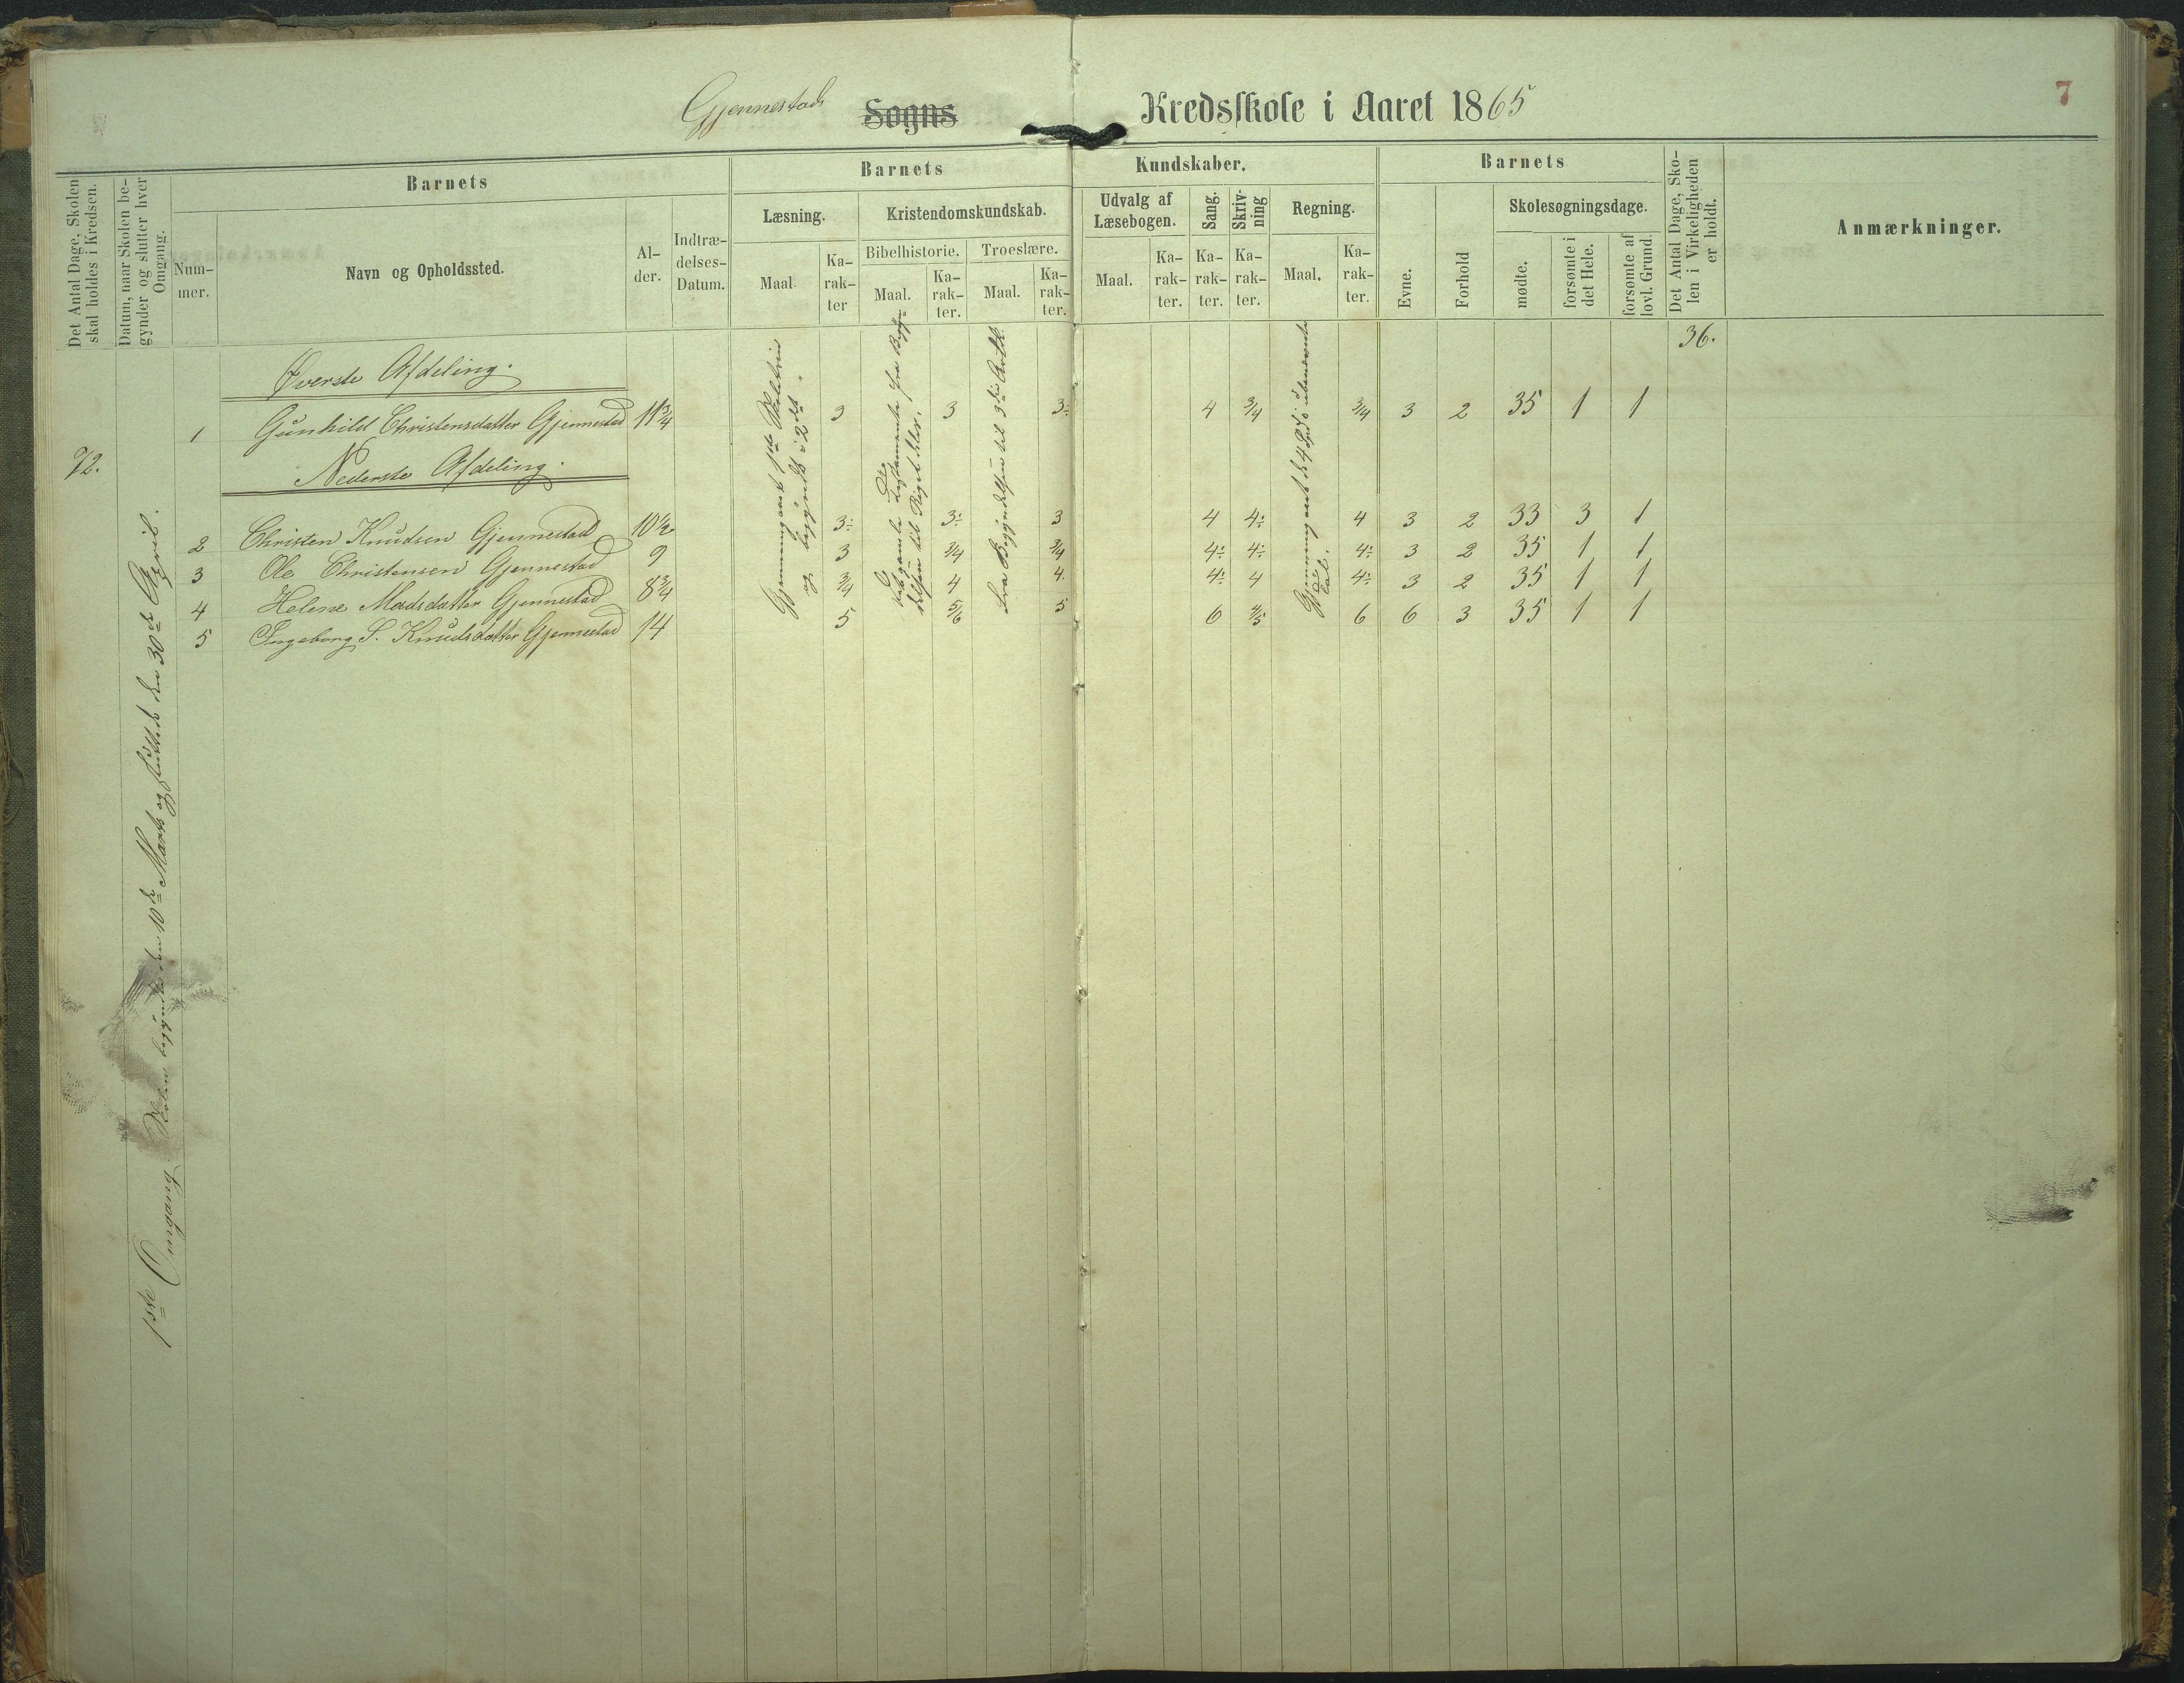 Gjennestads Sogns Kredsskole i Aaret 1865
7
Det Antal Dage, Skolen skal holdes i Kredsen.
Datum, naar Skolen begynder og slutter hver Omgang.
Barnets
Nummer.
Navn og Opholdssted.
Alder.
Indtrædelses-Datum.
Barnets Kundskaber.
Læsning.
Maal
Karakter
Kristendomskundskab.
Bibelhistorie.
Maal.
Karakter.
Troeslære.
Maal.
Karakter.
Udvalg af Læsebogen.
Maal.
Karakter.
Sang.
Karakter.
Skrivning
Karakter.
Regning.
Maal.
Karakter.
Barnets
Evne.
Forhold
Skolesøgningsdage.
mødte.
forsømte i det Hele.
forsømte af lovl. Grund.
Det Antal Dage, Skolen i Virkeligheden er holdt.
Anmærkninger.
36.
Øverste Afdeling.
1 Gunhild Christensdatter Gjennestad 11 3/4 3 3 3÷ 4 3/4 3/4 3 2 35 1 1
72.
Nederste Afdeling.
2 Christen Knudsen Gjennestad 10 1/2 3÷ 3÷ 3 4 4÷ 4 3 2 33 3 1
3 Ole Christensen Gjennestad 9 3 3/4 3/4 4÷ 4÷ 4÷ 3 2 35 1 1
4 Helene Madsdatter Gjennestad 8 3/4 3/4 4 4. 4÷ 4 4÷ 3 2 35 1 1
5 Ingeborg S. Knudsdatter Gjennestad 14 5 5/6 5 6 4/5 6 6 3 35 1 1
1ste Omgang Skolen begyndte den 10de Marts og sluttede den 30te April.
Gjennemgaaet 1ste Skoletrin
og begyndt i 2det.
Det gamle Testamente fra Begyn
delsen til Riget blev
fra Begyndelsen til 3die Artk.
Gjennemgaaet de 4 Sp. i ubenævnte
Tal.